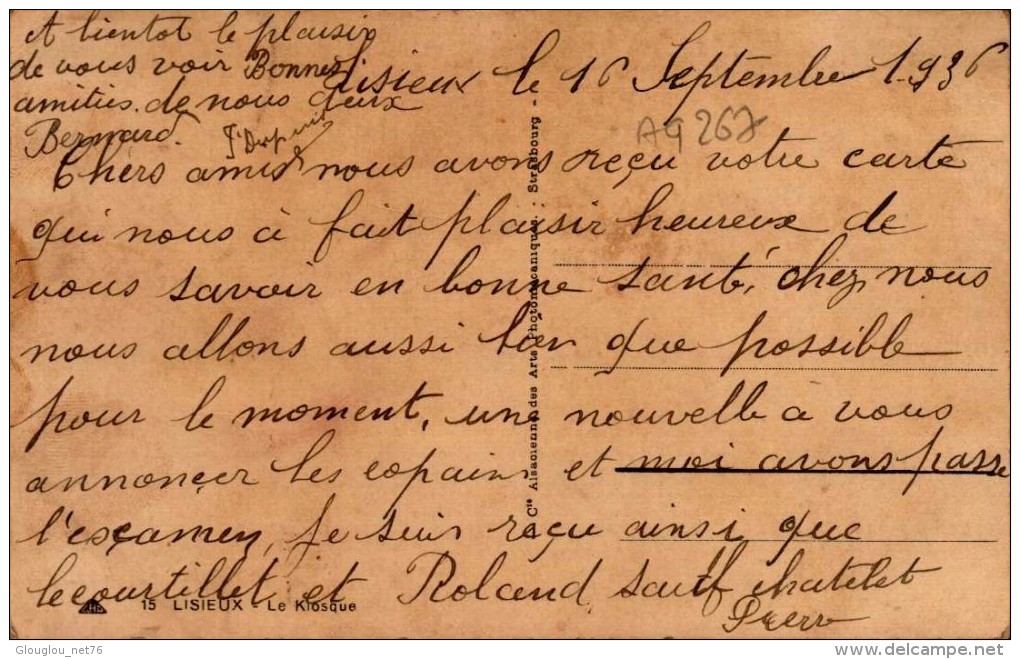 A bientot le plaisir
de vous voir Bonnes
amitiés de nous deux
Bernard.
Lisieux le 16 Septembre 1936
AG 267
Chers amis nous avons reçu votre carte
qui nous à fait plaisir heureux de
vous savoir en bonne santé, chez nous
nous allons aussi bien que possible
pour le moment, une nouvelle à vous
annonçer les copains et moi avons passé
l'exçamen, je suis reçu ainsi que
lecourtillet et Roland sauf chatelet
Pierre
Cie Alsacienne des Arts Photomécaniques - Strasbourg -
15 LISIEUX - Le Kiosque
Glouglou_net76
delcampe.net